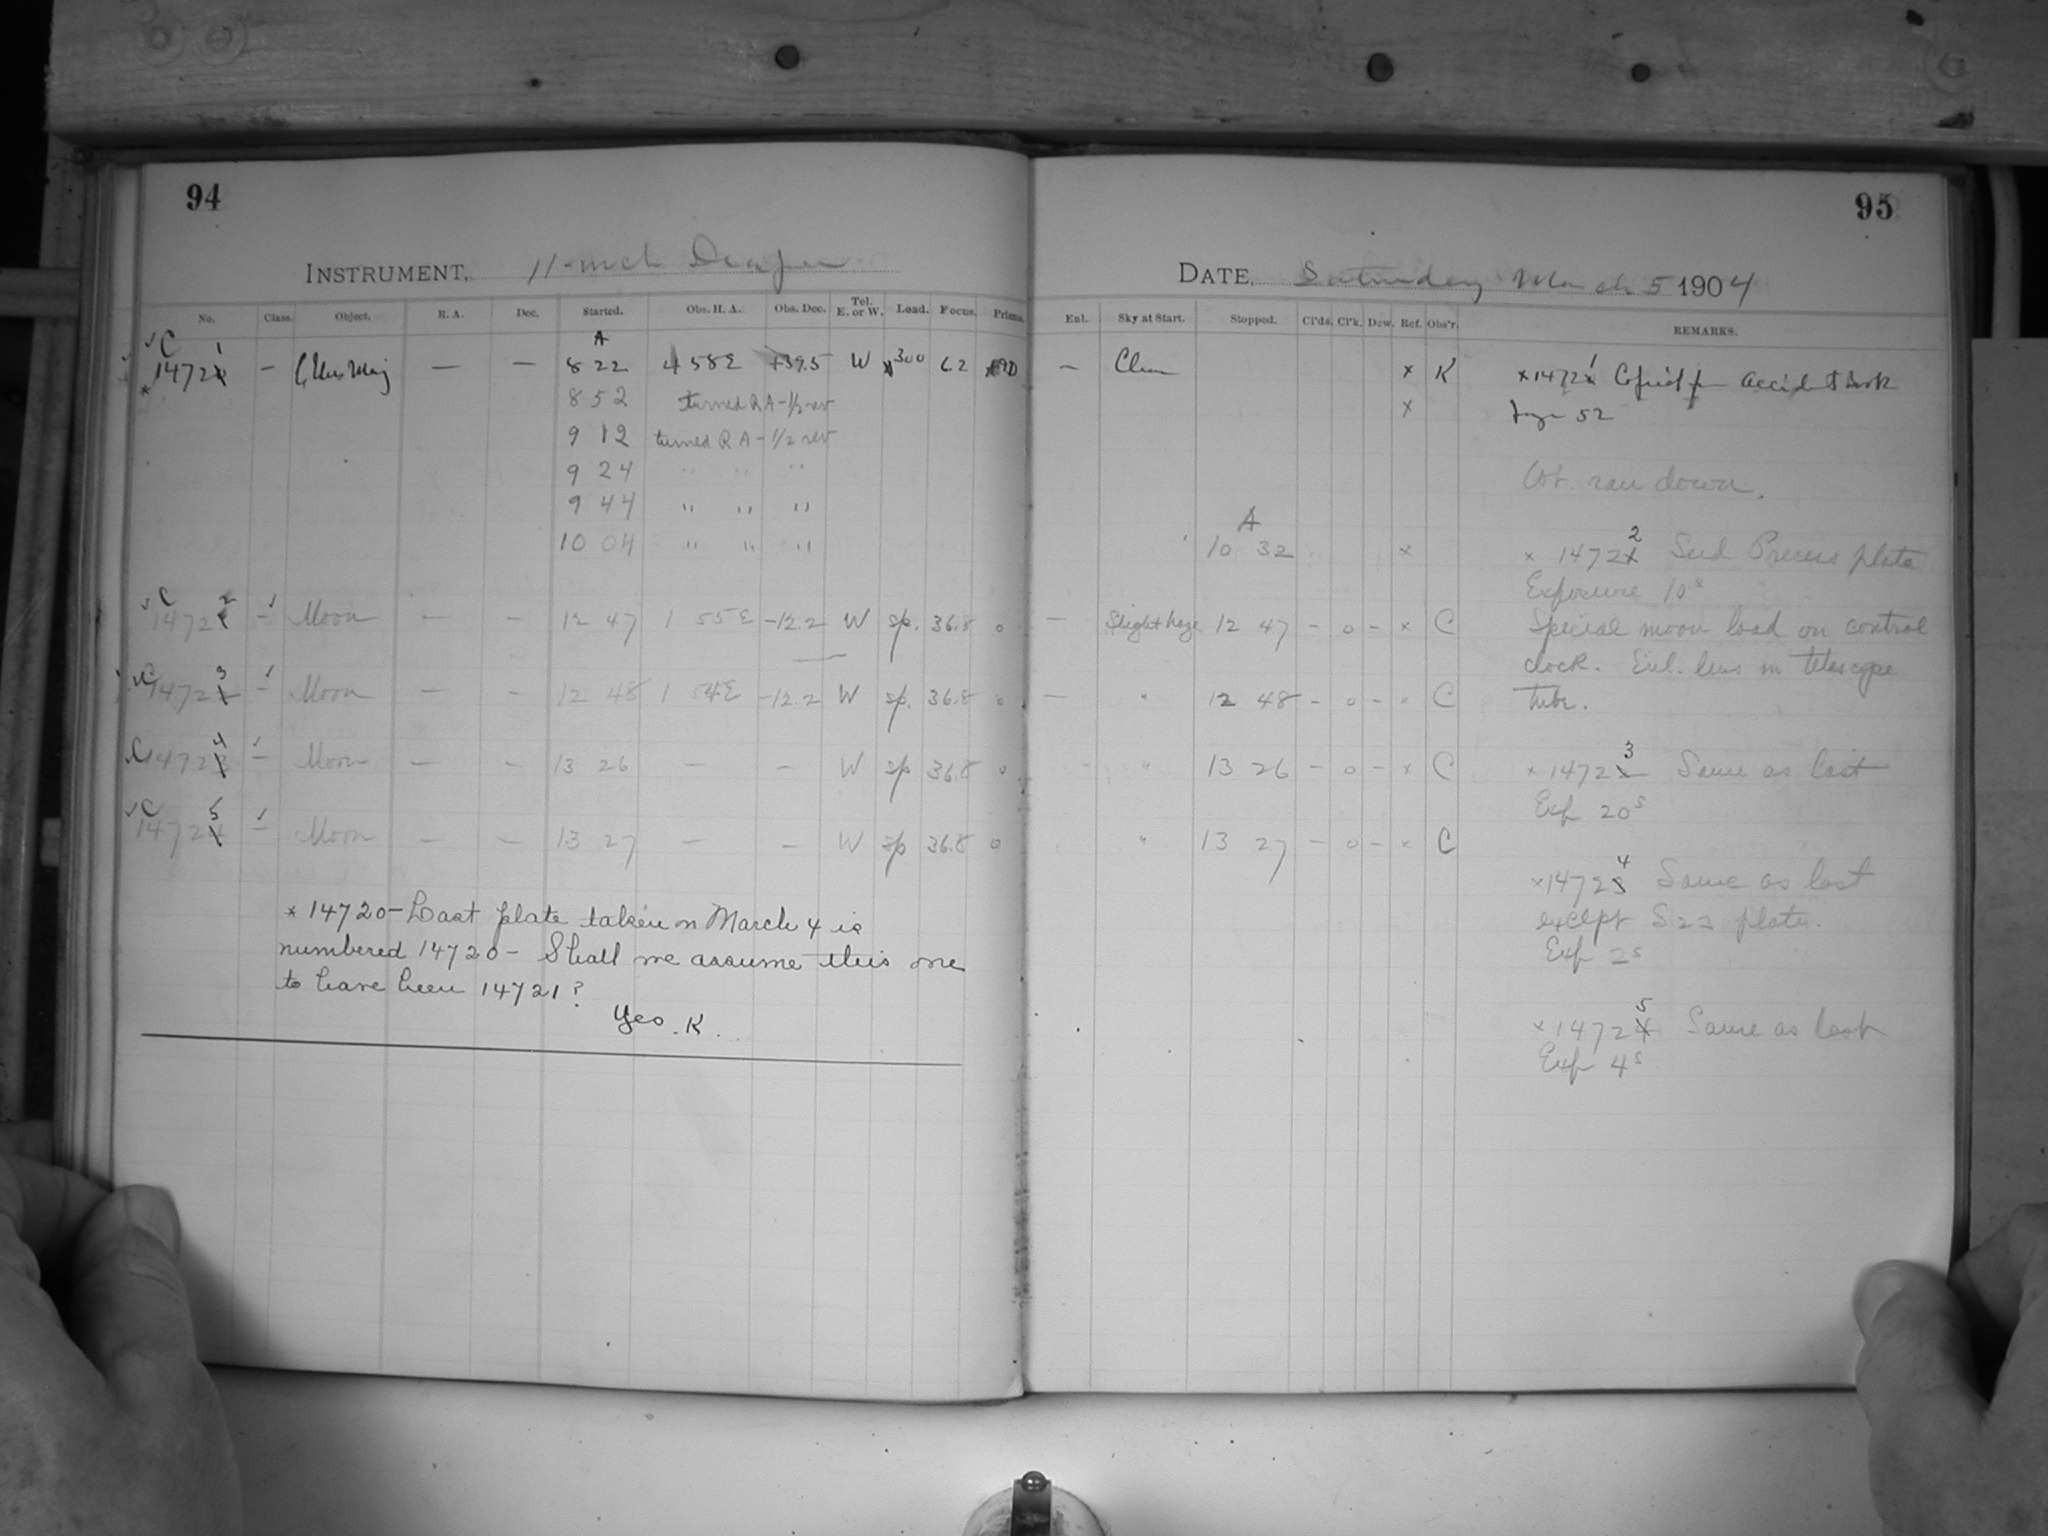 94
INSTRUMENT, 11-inch Draper
No. Class. Object. R. A. Dec. Started. Obs. H. A. Obs. Dec. Tel. E. or W. Load. Focus. Prisms.
A
C 14721 — — — 8 22 4 58 E +39.5 W 300
8 52 turned R A - 1/2 rev
9 12 turned R A - 1/2 rev
9 24 " " "
9 44 " " "
10 04 " " "
C 14722 — Moon — — 12 47 1 55 E -12.2 W sp. 36.8 0
C 14723 — Moon — — 12 48 1 54 E -12.2 W sp. 36.8 0
C 14724 — Moon — — 13 26 — — W sp 36.8 0
C 14725 — Moon — — 13 27 — — W sp 36.8 0
* 14720 - Last plate taken on March 4 is
numbered 14720 - Shall we assume this one
to have been 14721?
Yes. K.
95
DATE, Saturday March 5 1904
Enl. Sky at Start. Stopped. Cl'ds. Cl'k. Dew. Ref. Obs'r. REMARKS.
— Clear x K
x
A
10 32 x
— Slight haze 12 47 - 0 - x C
— " 12 48 - 0 - x C
" 13 26 - 0 - x C
" 13 27 - 0 - x C
x 14721 Copied fm Accident Book
Page 52
Wt. ran down.
x 14722 Seed Process plate
Exposure 10s
Special moon load on control
clock. Enl. lens in telescope
tube.
x 14723 Same as last
Exp 20s
x 14724 Same as last
except plate.
Exp 2s
x 14725 Same as last
Exp 4s